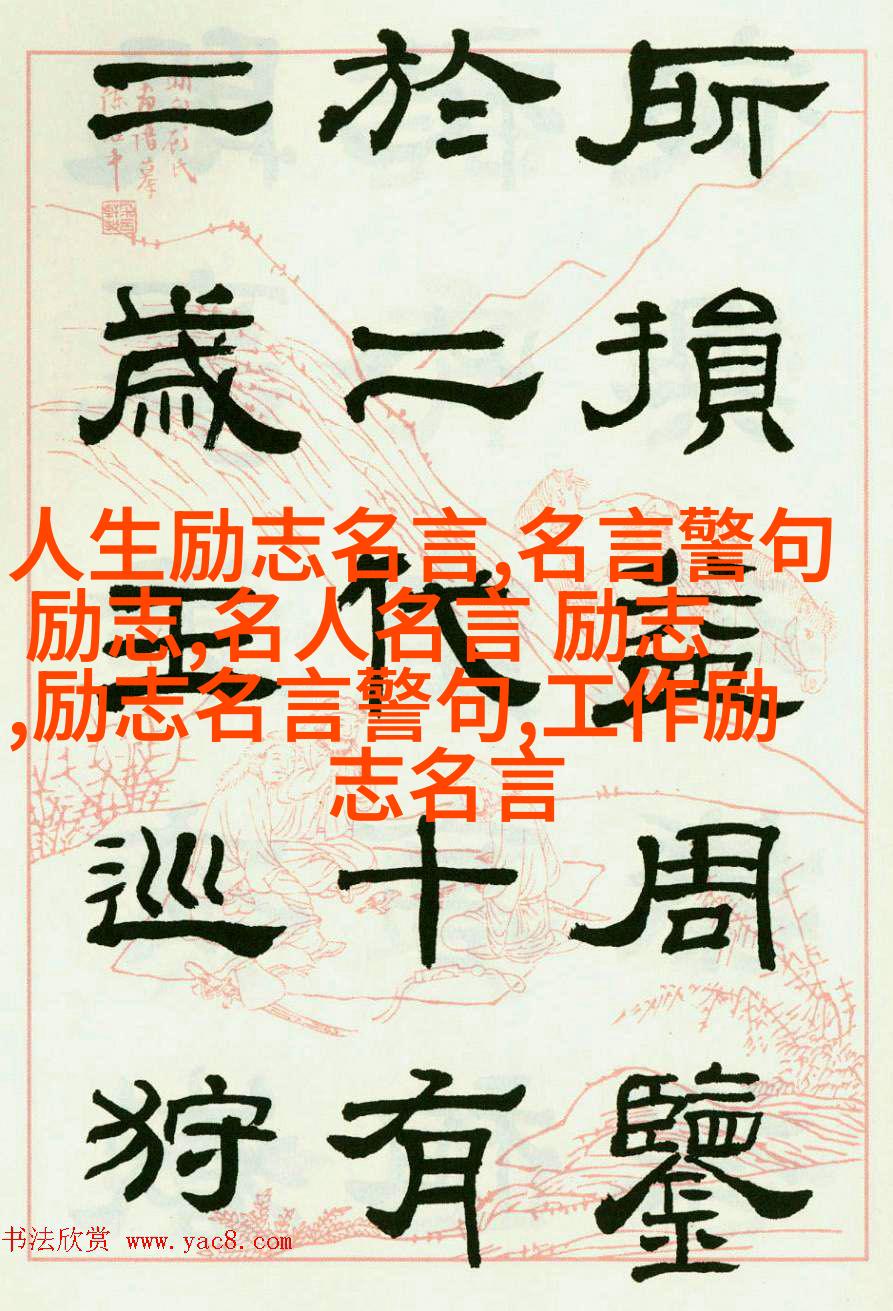 所損益周鑒
於二代十有
二歲王巡狩
人生励志名言,名言警句
励志,名人名言 励志
,励志名言警句,工作励
志名言
书法欣赏 www.yac8.com